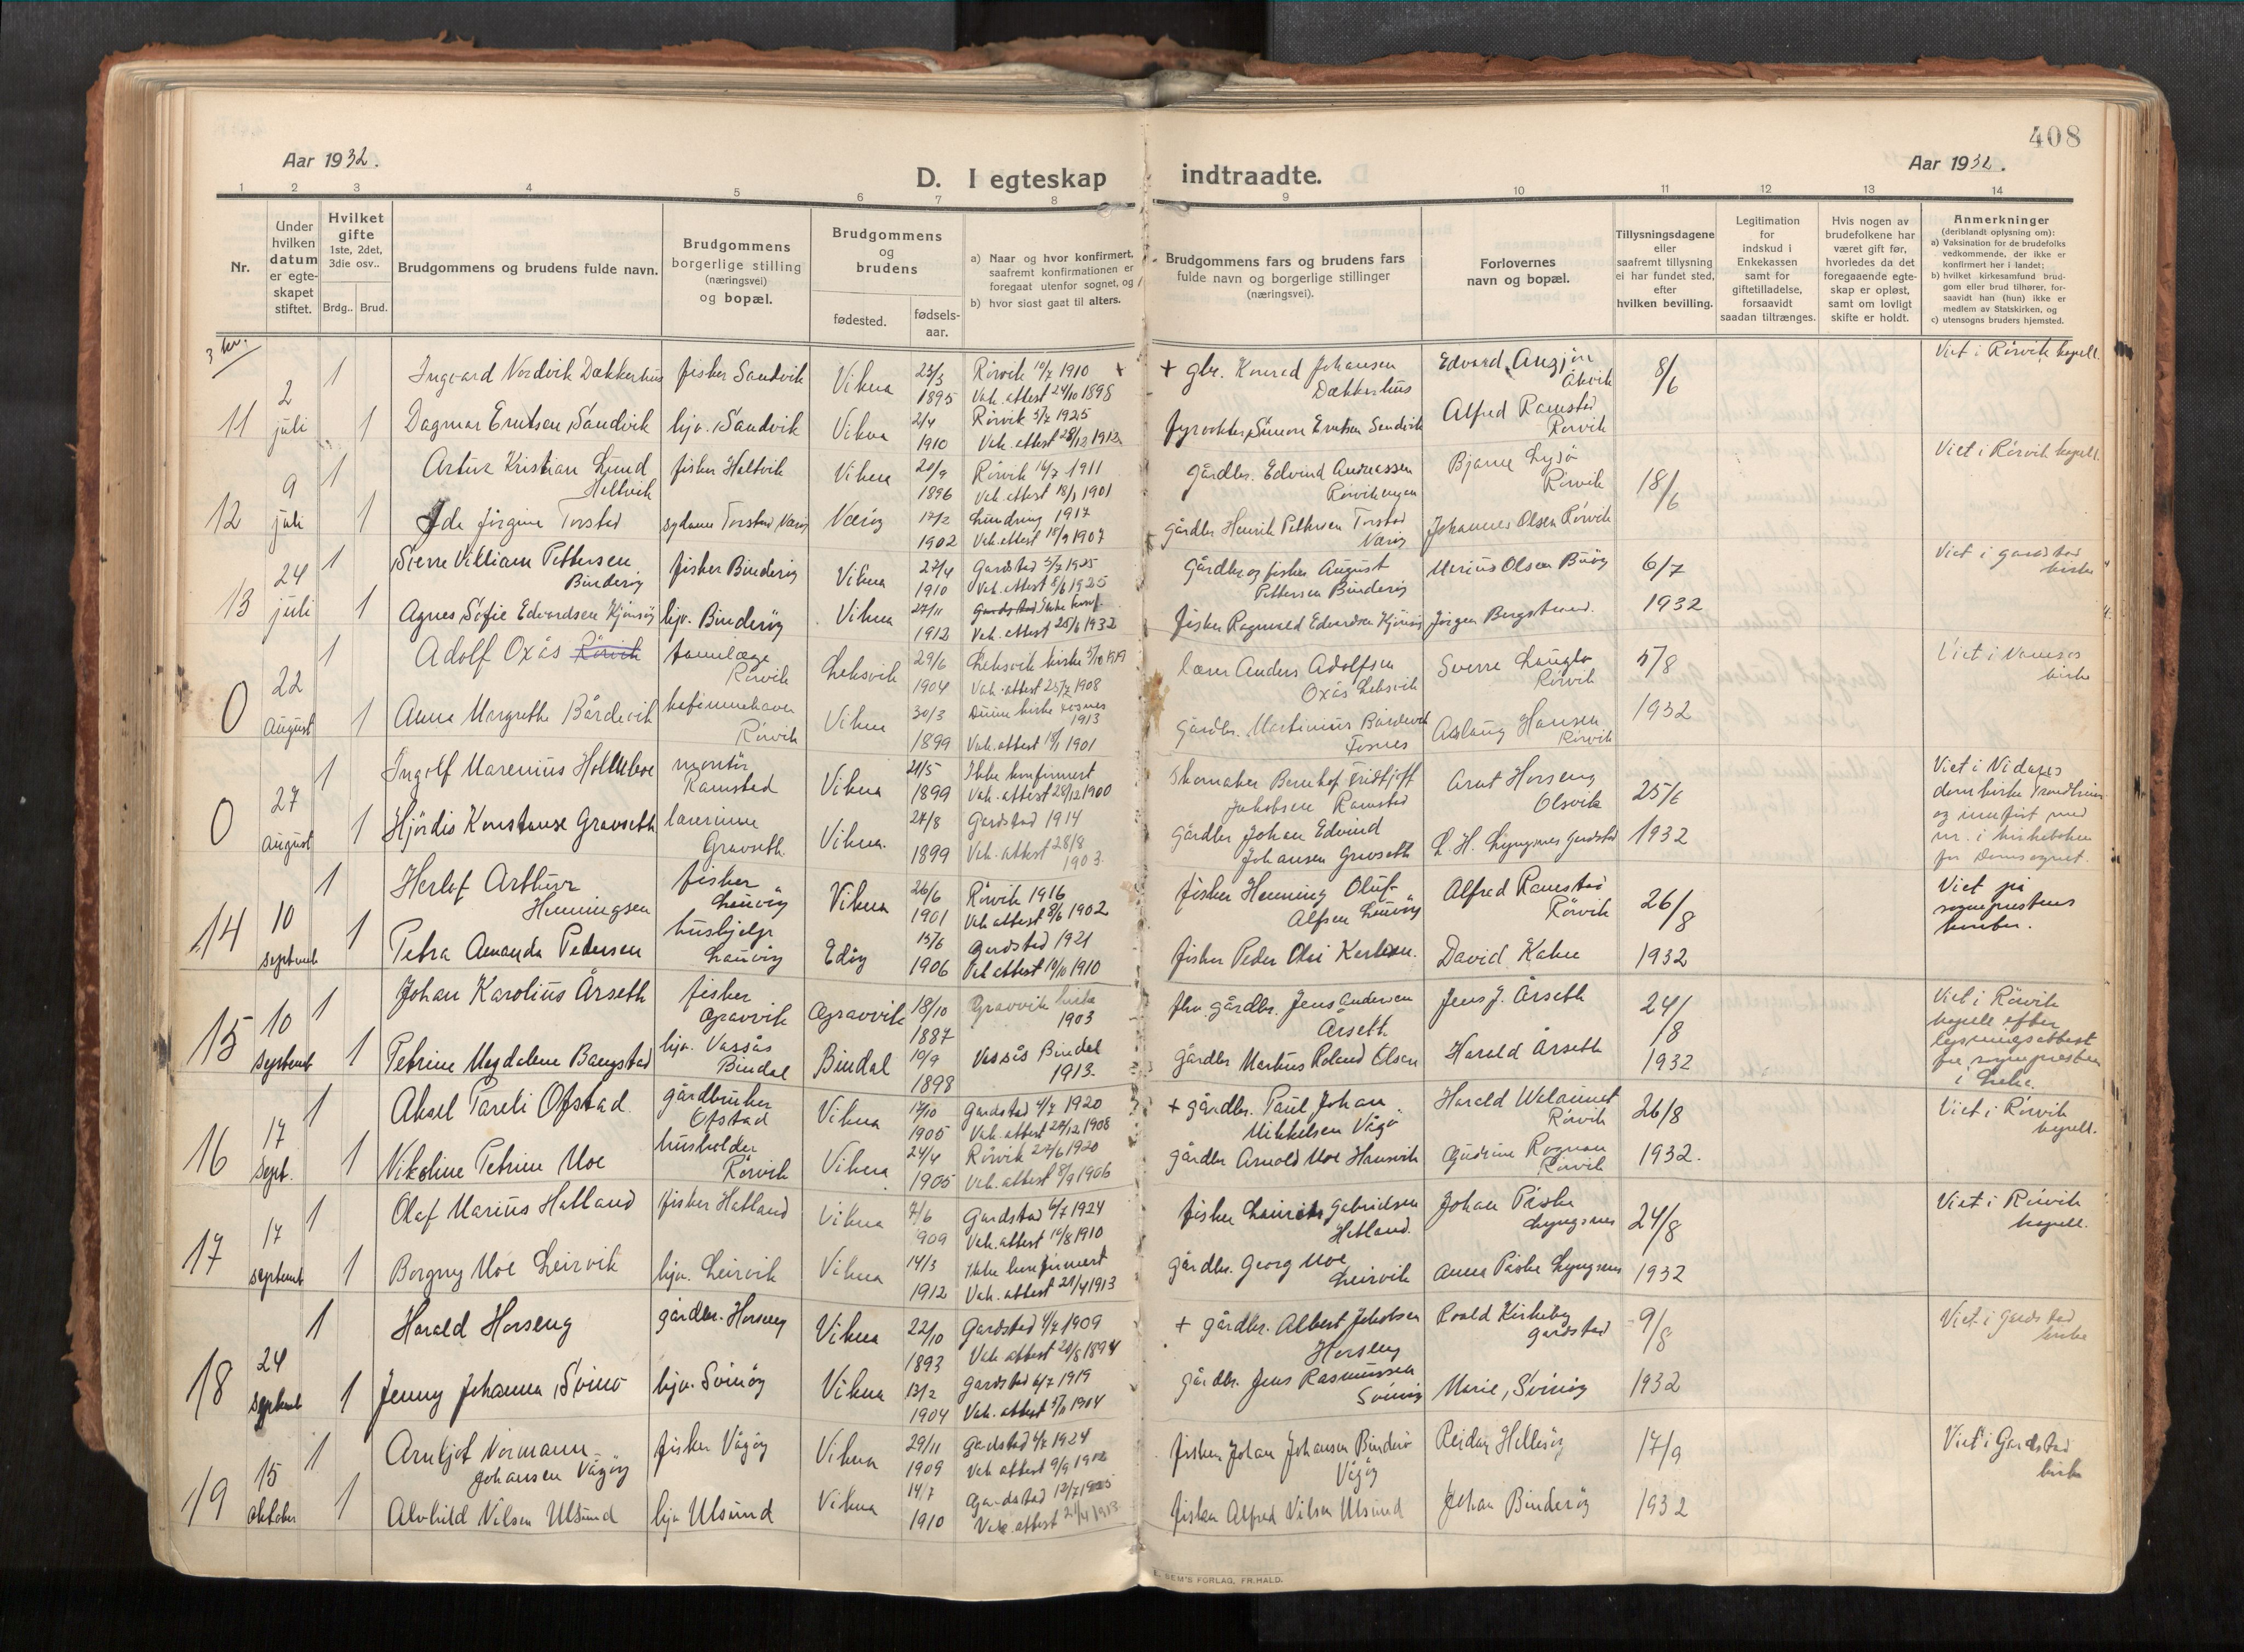 408
Aar 1932.
Aar 1932.
D. I egteskap indtraadte.
1 2 3 4 5 6 7 8 9 10 11 12 13 14
Nr.
Under hvilken datum er egte-skapet stiftet.
Hvilket gifte
1ste, 2det, 3die osv..
Brdg.. Brud.
Brudgommens og brudens fulde navn.
Brudgommens borgerlige stilling (næringsvei) og bopæl.
Brudgommens og brudens
fødested.
fødsels-aar.
a) Naar og hvor konfirmert, saafremt konfirmationen er foregaat utenfor sognet, og
b) hvor sidst gaat til alters.
Brudgommens fars og brudens fars fulde navn og borgerlige stillinger (næringsvei).
Forlovernes navn og bopæl.
Tillysningsdagene eller saafremt tillysning ei har fundet sted, efter hvilken bevilling.
Legitimation for indskud i Enkekassen samt for giftetilladelse, forsaavidt saadan tiltrænges.
Hvis nogen av brudefolkene har været gift før, hvorledes da det foregaaende egte-skap er opløst, samt om lovligt skifte er holdt.
Anmerkninger
(deriblandt oplysning om):
a) Vaksination for de brudefolks vedkommende, der ikke er konfirmert her i landet;
b) hvilket kirkesamfund brud-gom eller brud tilhører, for-saavidt han (hun) ikke er medlem av Statskirken, og
c) utensogns bruders hjemsted.
11 2 juli
1 Ingvard Nordvik Dækkerhus fisker Sandvik Vikna 23/3 1895 Rørvik 10/7 1910 Vak. attest 24/10 1898
+ gbr. Konrad Johansen Dækkerhus Edvard Angjøn Åkvik 8/6 Viet i Rørvik kapell.
1 Dagmar Erntsen Sandvik hjv. Sandvik Vikna 2/4 1910 Rørvik 5/7 1925 Vak. attest 28/12 1912
Fyrvokter Simon Erntsen Sandvik Alfred Ramstad Rørvik
12 9 juli
1 Artur Kristian Lund Heltvik fisker Heltvik Vikna 20/9 1896 Rørvik 16/7 1911 Vak. attest 18/1 1901
Gårdbr. Edvind Andreassen Rørvikengen Bjarne Lysø Rørvik 18/6 Viet i Rørvik kapell.
1 Ida Jørgine Torstad sydame Torstad Nærøy Nærøy 17/2 1902 Lundring 1917 Vak. attest 18/9 1907
Gårdbr Henrik Pettersen Torstad Nærøy Johannes Olsen Rørvik
13 24 juli
1 Sverre Villiam Pettersen Binderøy fisker Binderøy Vikna 27/4 1910 Gardstad 5/7 1925 Vak. attest 8/6 1925
Gårdbr og fisker August Pettersen Binderøy Marius Olsen Buøy 6/7 Viet i Gardstad kirke
1 Agnes Sofie Edvardsen Kjønsøy hjv. Binderøy Vikna 27/11 1912 Gardstad Ikke konf. Vak. attest 25/6 1932
Fisker Ragnvald Edvardsen Kjønsøy Jørgen Bergstrand. 1932
0 22 august
1 Adolf Oxås Rørvik tannlæge Rørvik Leksvik 29/6 1904 Leksvik kirke 5/10 1919 Vak. attest 25/7 1908
lærer Anders Adolfsen Oxås Leksvik Sverre Langlo Rørvik 7/8 Viet i Namsos kirke
1 Anna Margrethe Bårdevik kafeinnehaver Rørvik Vikna 30/3 1899 Duun kirke Fosnes 1913 Vak. attest 18/1 1901
Gårdbr. Martinius Bårdevik Fosnes Aslaug Hansen Rørvik 1932
0 27 august
1 Ingolf Marenius montør Ramstad Vikna 21/5 1899 Ikke konfirmert Vak. attest 28/12 1900
Skomaker Bernhof Fridtjoff Jakobsen Ramstad Arnt Horseng Olsvik 25/6 Viet i Nidaros domkirke Trondheim og innført med nr. i kirkeboken for Domsognet.
1 Hjördis Konstanse Gravseth lærerinne Gravseth Vikna. 27/8 1899 Gardstad 1914 Vak. attest 28/8 1903
Gårdbr Johan Edvind Johansen Gravseth L. H. Lyngsnes Gardstad 1932
14 10 september
1 Herlof Arthur Henningsen fisker Lauvøy Vikna 26/6 1901 Rørvik 1916 Vak attest 8/6 1902
fisker Henning Oluf Alfsen Lauvöy Alfred Ramstad Rörvik 26/8 Viet på sogneprestens kontor.
1 Petra Amanda Pedersen hushjelp Lauvöy Edöy 15/6 1906 Gardstad 1921 Vak attest 10/10 1910
fisker Peder Olai David Kahn 1932
15 10 september
1 Johan Karolius Årseth fisker Gravvik Gravvik 18/10 1887 Gravvik kirke 1903
fhv. gårdbr. Jens Andersen Årseth Jens J. Årseth 24/8 Viet i Rörvik kapell efter lysningsattest fra sognepresten i Leka.
1 Petrine Magdalene Bangstad hjv. Vassås Bindal Bindal 10/9 1898 Vassås Bindal 1913.
Gårdbr Markus Roland Olsen Harald Årseth 1932
16 17 sept.
1 Aksel Pareli Ofstad gårdbruker Ofstad Vikna 17/10 1905 Gardstad 4/7 1920 Vak. attest 28/12 1908
+ gårdbr. Paul Johan Mikkelsen Vågö Harald Rørvik 26/8 Viet i Rörvik kapell.
1 Nikoline Petrine Moe husholder Rørvik Vikna 24/4 1905 Rørvik 27/6 1920 Vak. attest 8/9 1906
gårdbr Arnold Moe Hansvik Gudrun Rognan Rørvik 1932.
17 17 september
1 Olaf Marius Hatland fisker Hatland Vikna 7/6 909 Gardstad 6/7 1924 Vak. attest 10/8 1910
fisker Laurits Gabrielsen Hatland. Johan Påske Lyngsnes 24/8 Viet i Rörvik kapell.
1 Borgny Moe Leirvik hjv. Leirvik Vikna 14/3 1912 Ikke konfirmert Vak. attest 21/4 1913
Gårdbr. Georg Moe Leirvik Anna Påske Lyngsnes 1932
18 24 september
1 Harald Horseng gårdbr. Horseng Vikna 22/10 1893 Gardstad 4/7 1909 Vak attest 20/8 1894
+ gårdbr. Albert Jakobsen Horseng Roald Kirkeby Gardstad 9/8 Viet i Gardstad kirke
1 Jenny Johanna Svinö hjv. Svinöy Vikna 13/2 1904 Gardstad 6/7 1919 Vak. attest 5/11 1904
gårdbr. Jens Rasmussen Svinöy Marie Svinöy 1932
19 15 oktober
1 Arnljot Normann Johansen Vågöy fisker Vågöy Vikna 29/11 1909 Gardstad 6/7 1924 Vak attest 9/9 1912
fisker Johan Johansen Binderö Vågöy Reidar Hellesöy 17/9 Viet i Gardstad kirke
1 Alvhild Nilsen Ulsund hjv Ulsund Vikna 14/7 1910 Gardstad 12/7 1925 Vak. attest 21/4 1913
fisker Alfred Nilsen Ulsund Johan Binderöy 1932
SEM'S FORLAG, FR.HALD.